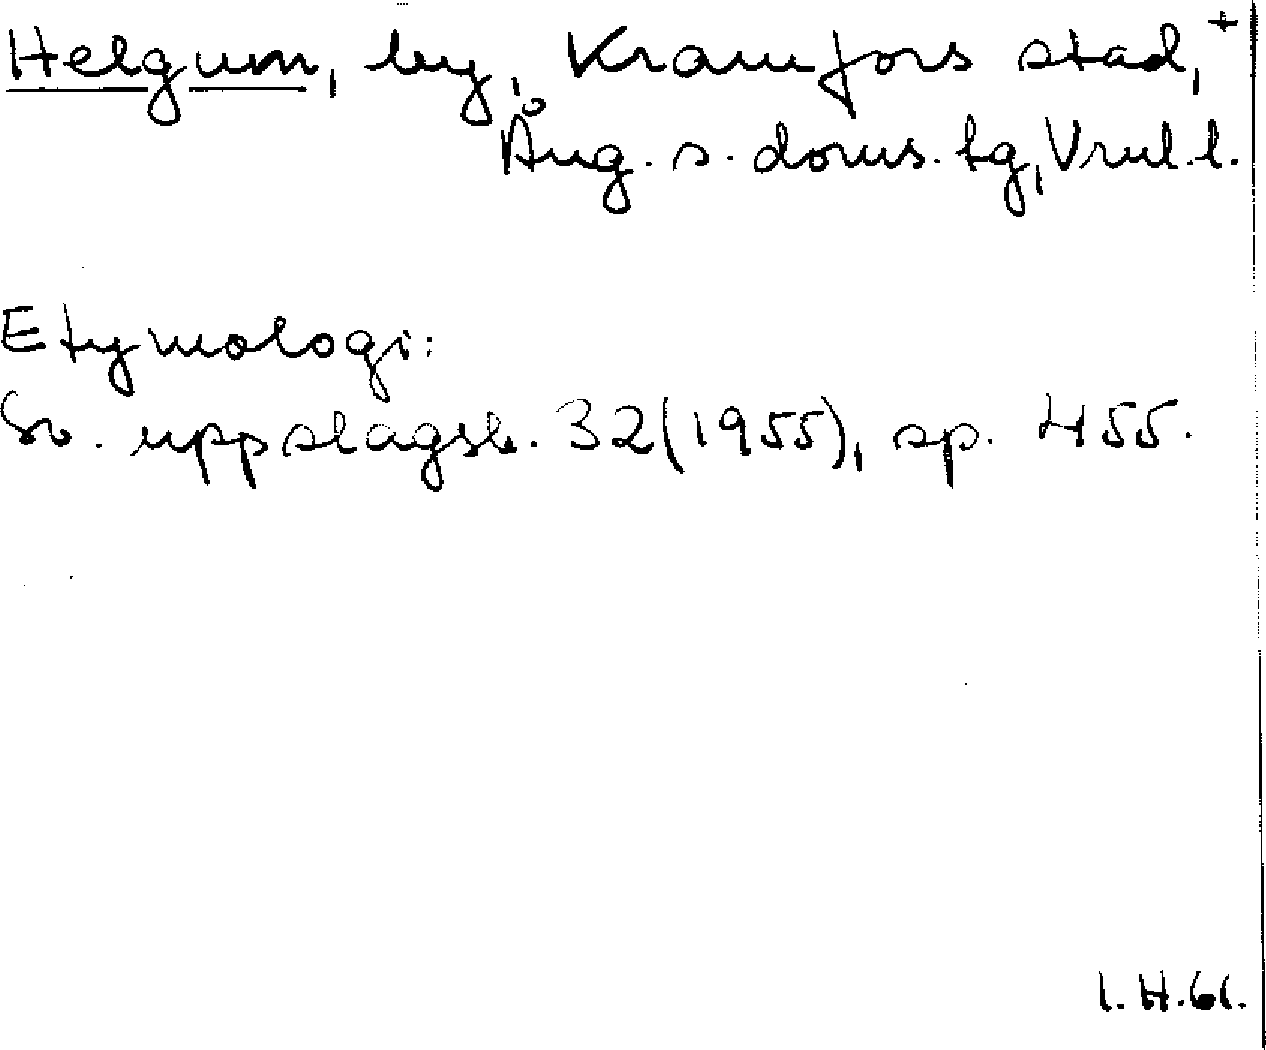 Helgum, by, Kramfors stad, +
Ång. s. doms. tg, Vrnl. l.
Etymologi:
Sv. uppslagsb. 32 (1955), sp. 455.
I. H. 61.